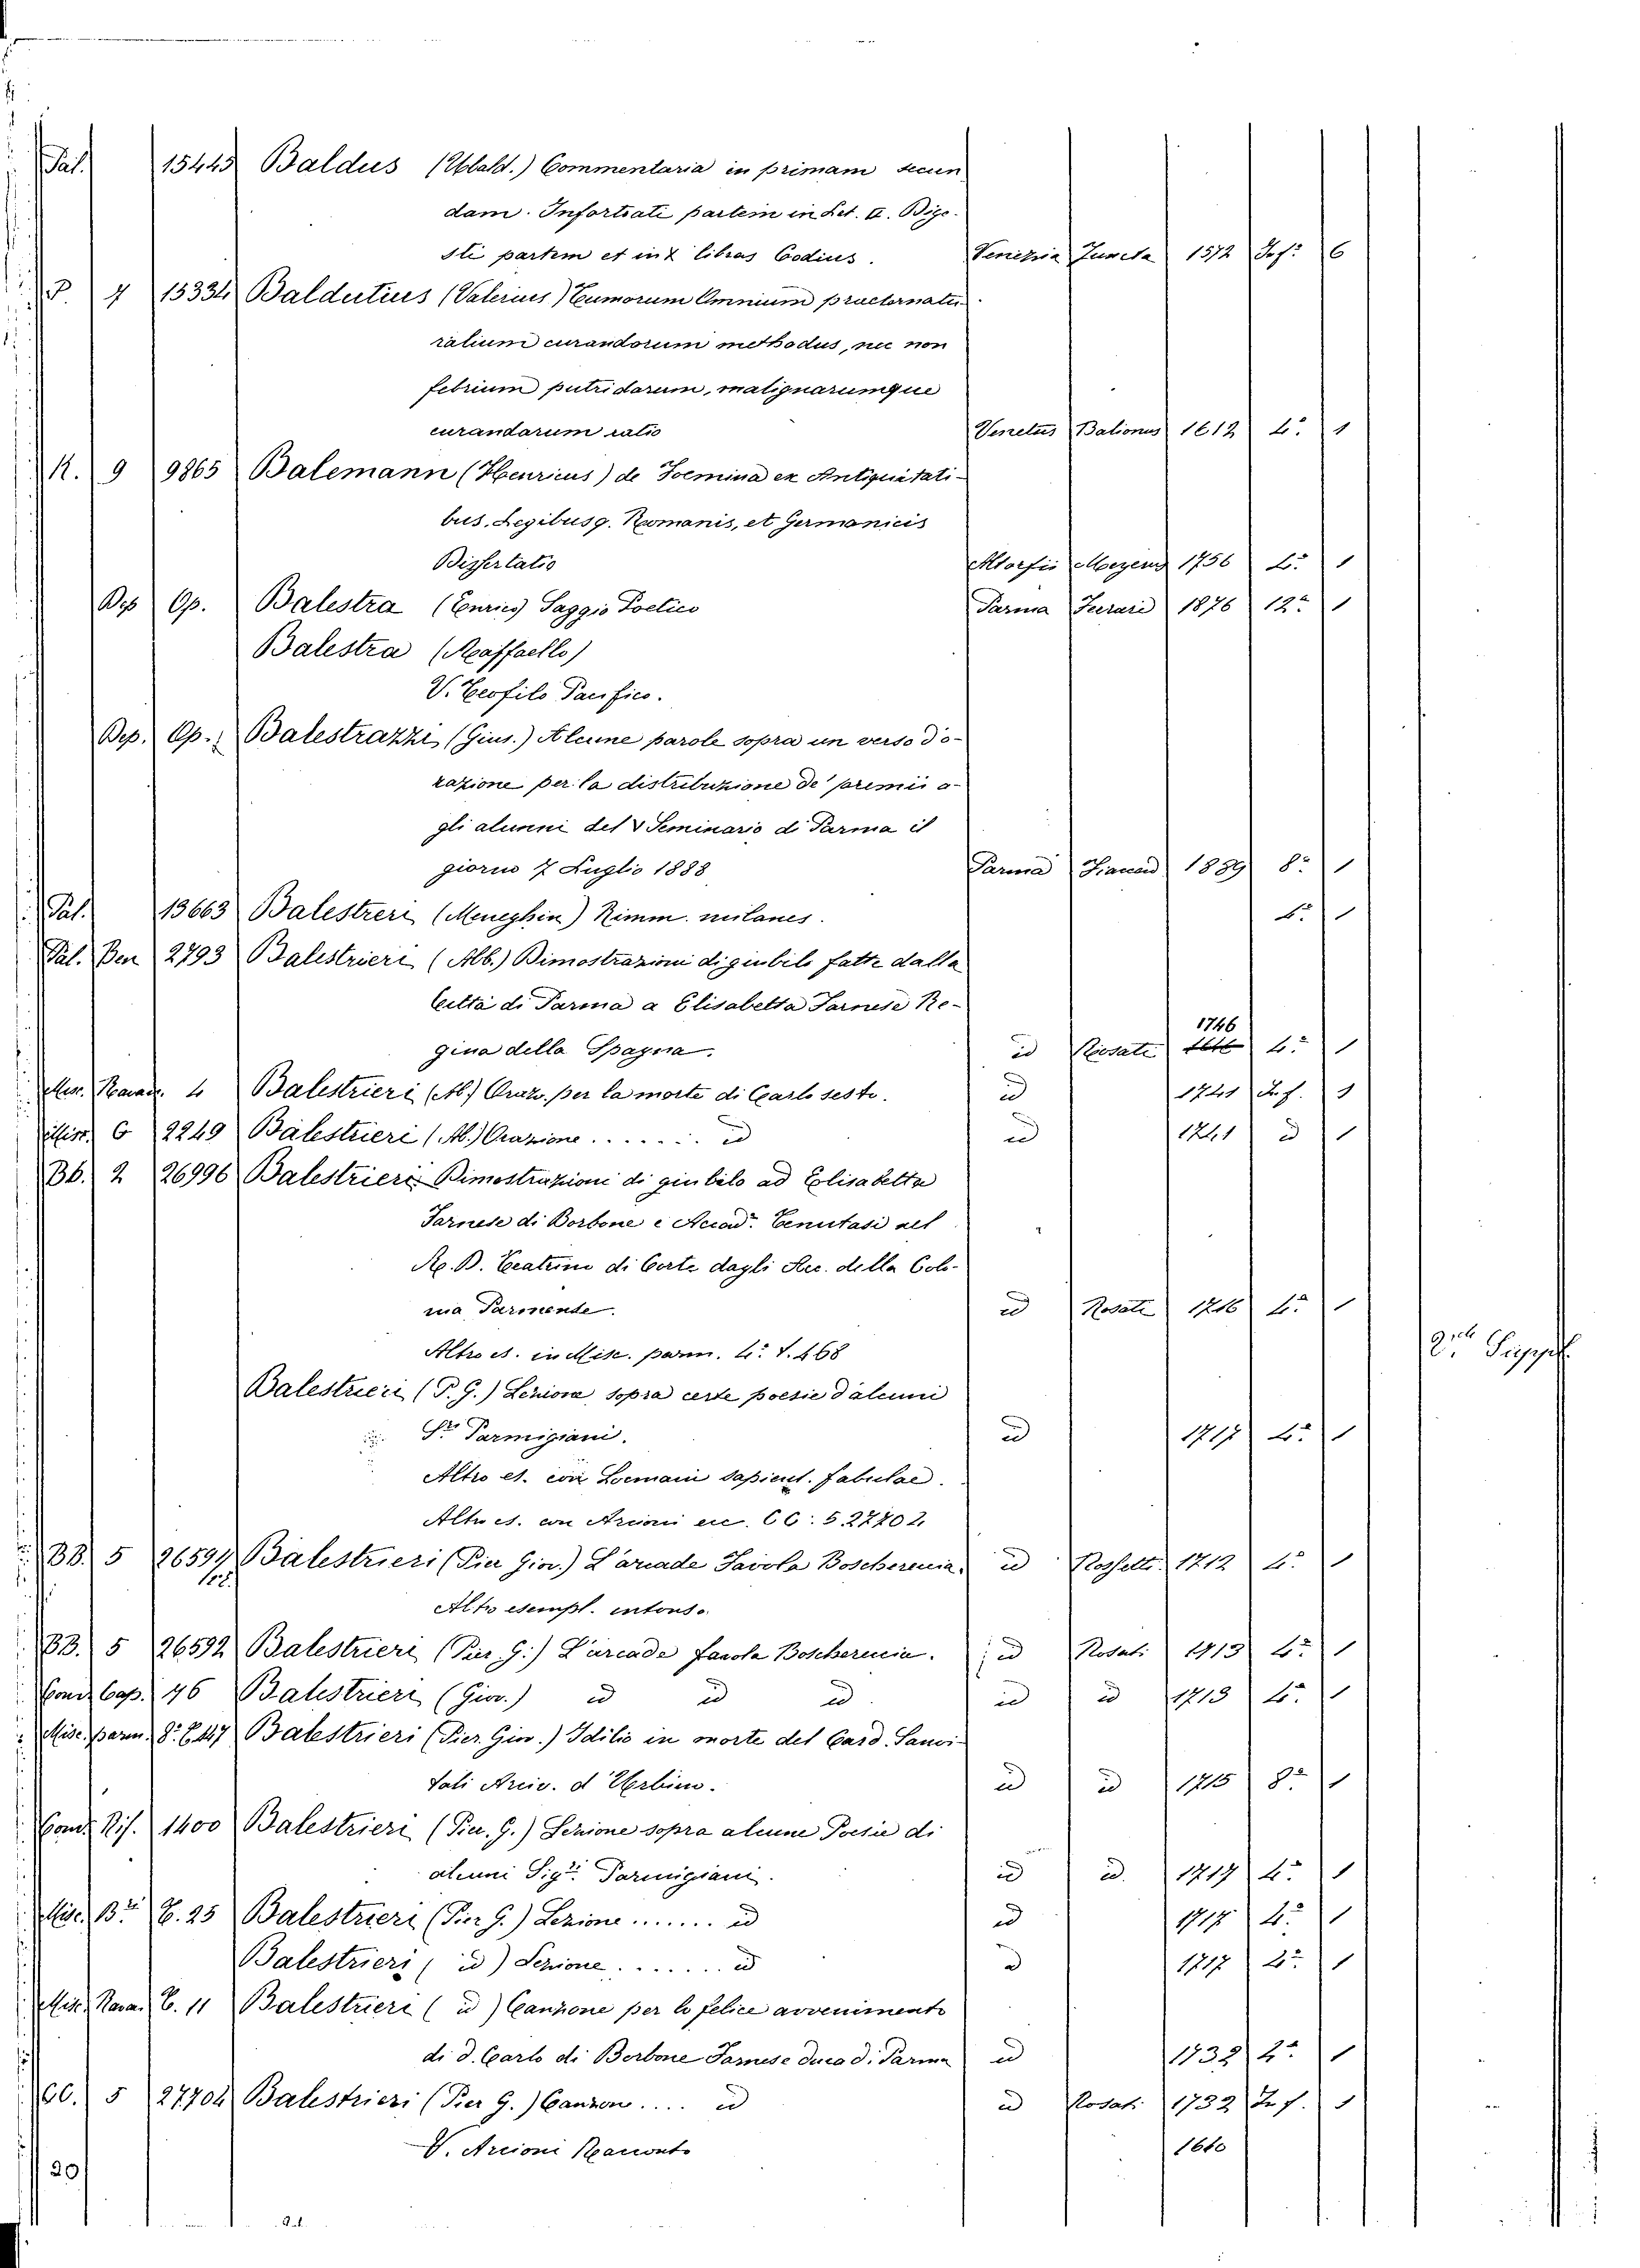 Pal. 15445 Baldus (Ubald.) Commentaria in primam secun
dam. Infortiati partem in
sti partem et in X libros Codius. Venezia Juncta 1572 In f.º 6
P. 4 15334 Baldutius (Valerius) Tumorum Omnium praeternatu
ralium curandorum methodus, nec non
febrium putridarum, malignarumque
curandarum ratio Venetus Balionus 1612 4º 1
R. 9 9865 Balemann (Henricus) de Foemina ex Antiquitati-
bus, Legibusq. Romanis, et Germanicis
Dissertatio Altorfii Meyeng 1756 4º 1
Dep Op. Balestra (Enrico) Saggio Poetico Parma Ferrari 1876 12º 1
Balestra (Raffaello)
V. Teofilo Pacifico.
Dep. Op. Balestrazzi (Gius.) Alcune parole sopra un verso d'o-
razione per la distribuzione de' premii a-
gli alunni del V Seminario di Parma il
giorno 7 Luglio 1888 Parma 1889 8º 1
Pal. 13663 Balestreri (Meneghin) Rimm. milanes. 4º 1
Pal. Ben 2793 Balestrieri (Alb.) Dimostrazioni di giubilo fatte dalla
Città di Parma a Elisabetta Farnese Re-
1746
gina della Spagna. id Rosati 4º 1
Misc. 4 Balestrieri (Ab.) Oraz. per la morte di Carlo sesto. id 1741 In f. 1
Misc. 6 2249 Balestrieri (Ab.) Orazione ....... id id 1741 id 1
Bb. 2 26996 Balestrieri Dimostrazioni di giubilo ad Elisabetta
Farnese di Borbone e Accad. tenutasi nel
R. D. Teatrino di Corte dagli Acc. della Colo-
nia Parmense. id Rosati 1746 4º 1
Altro es. in Misc. parm. 4º T. 468
2º Suppl.
Balestrieri (P. G.) Lezione sopra certe poesie d'alcuni
Sr. Parmigiani. id 1717 4º 1
Altro es. con Locmani sapient. fabulae.
Altro es. con Arcioni CC. 5. 27702
BB. 5 26591 Balestrieri (Pier Giov.) L'arcade Favola Boschereccia. id Rossetti 1712 4º 1
Altro esempl. intonso.
BB. 5 26592 Balestrieri (Pier G.) L'arcade favola Boschereccia. id Rosati 1713 4º 1
Cap. 46 Balestrieri (Giov.) id id id id id 1713 4º 1
Misc. parm. 8º T. 447 Balestrieri (Pier Giov.) Idilio in morte del Card. Sanvi-
tali Arciv. d'Urbino. id id 1715 8º 1
1400 Balestrieri (Pier. G.) Lezione sopra alcune Poesie di
alcuni Sigri Parmigiani. id id. 1717 4º 1
Misc. Bº T. 25 Balestrieri (Pier G.) Lezione ....... id id 1717 4º 1
Balestrieri ( id ) Lezione ....... id id 1717 4º 1
Misc. T. 11 Balestrieri ( id ) Canzone per lo felice avvenimento
di d. Carlo di Borbone Farnese duca di Parma id 1732 4º 1
CC. 5 27704 Balestrieri (Pier G.) Canzon .... id id Rosati 1732 In f. 1
V. Arcioni 1660
20